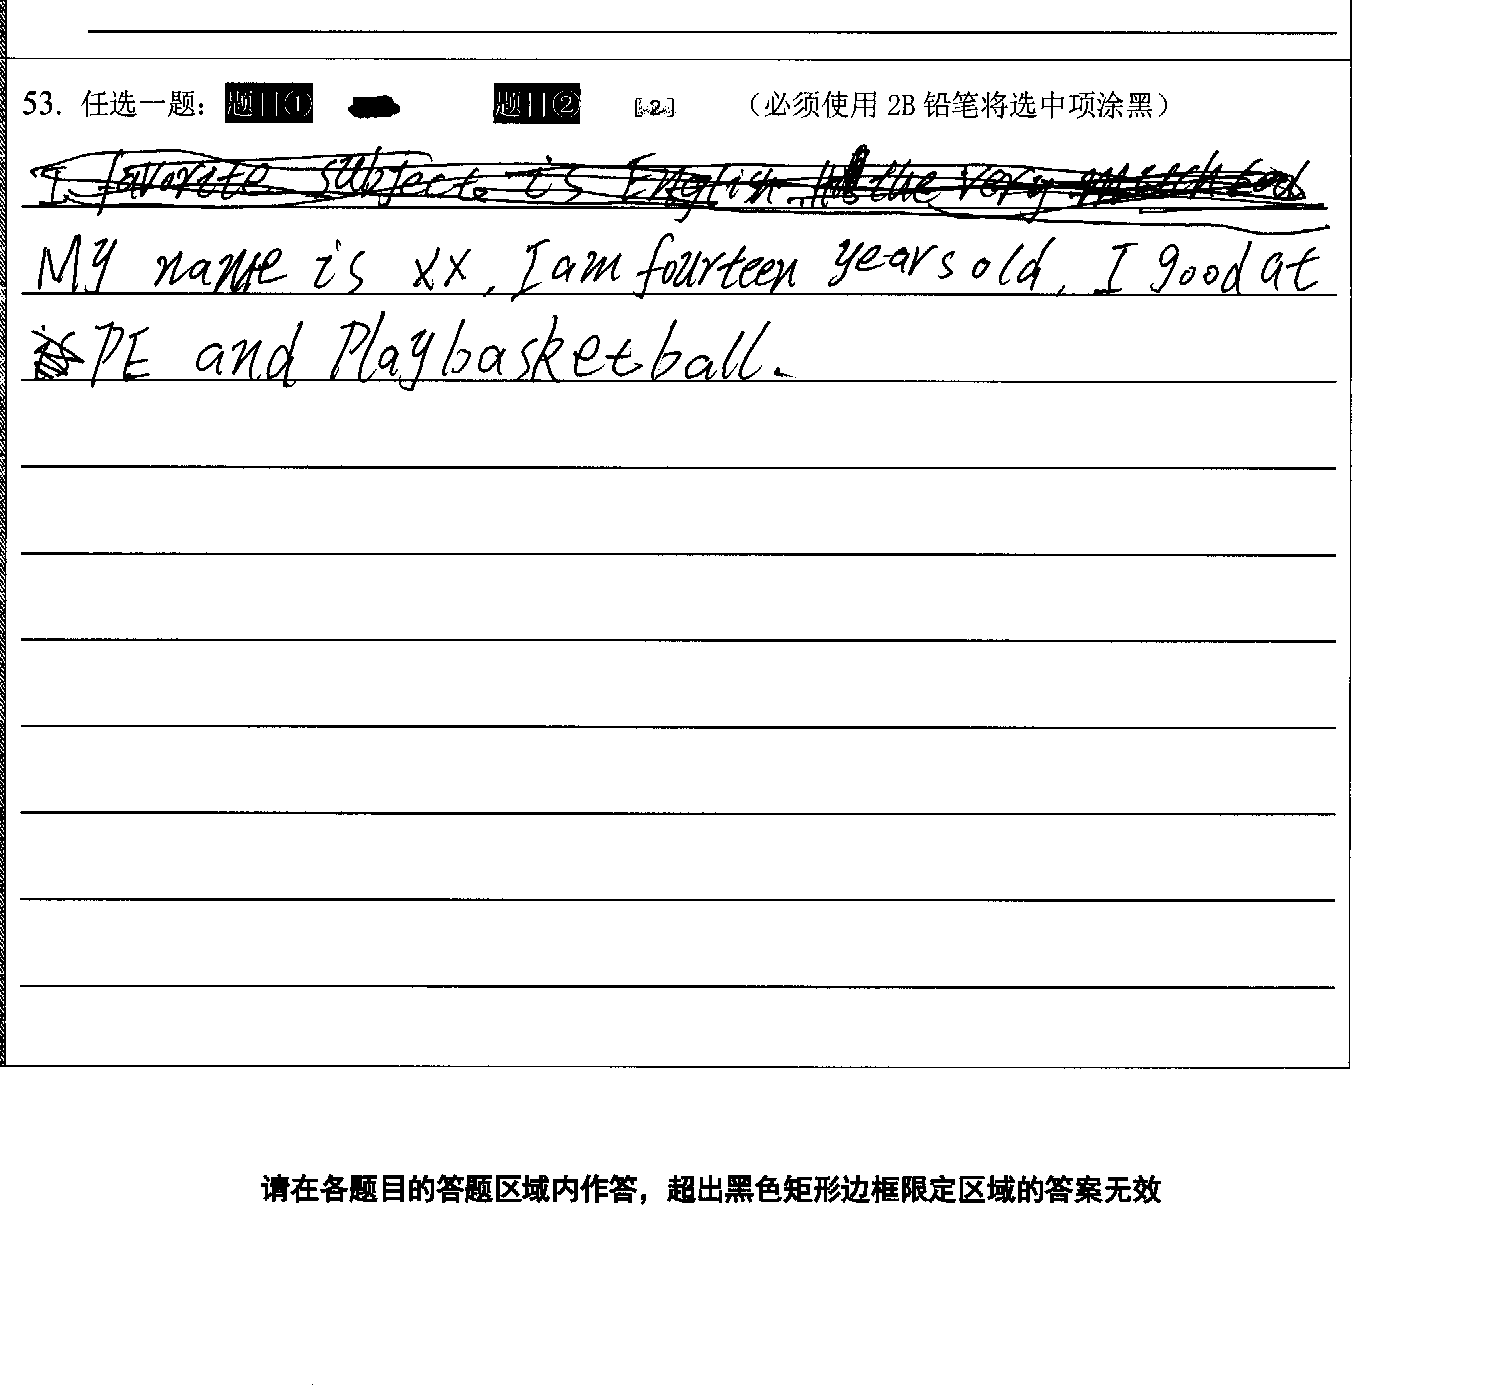 53. 任选一题： 题目① 题目② [2] （必须使用 2B 铅笔将选中项涂黑）
I favorite subject is English the very
My name is xx. I am fourteen years old. I good at
PE and Play basketball.
请在各题目的答题区域内作答，超出黑色矩形边框限定区域的答案无效